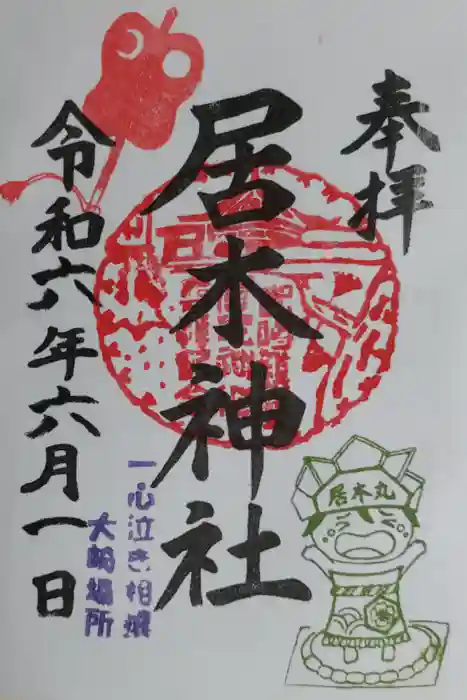 奉拝
居木神社
令和六年六月一日
一心泣き相撲
大崎場所
居木丸